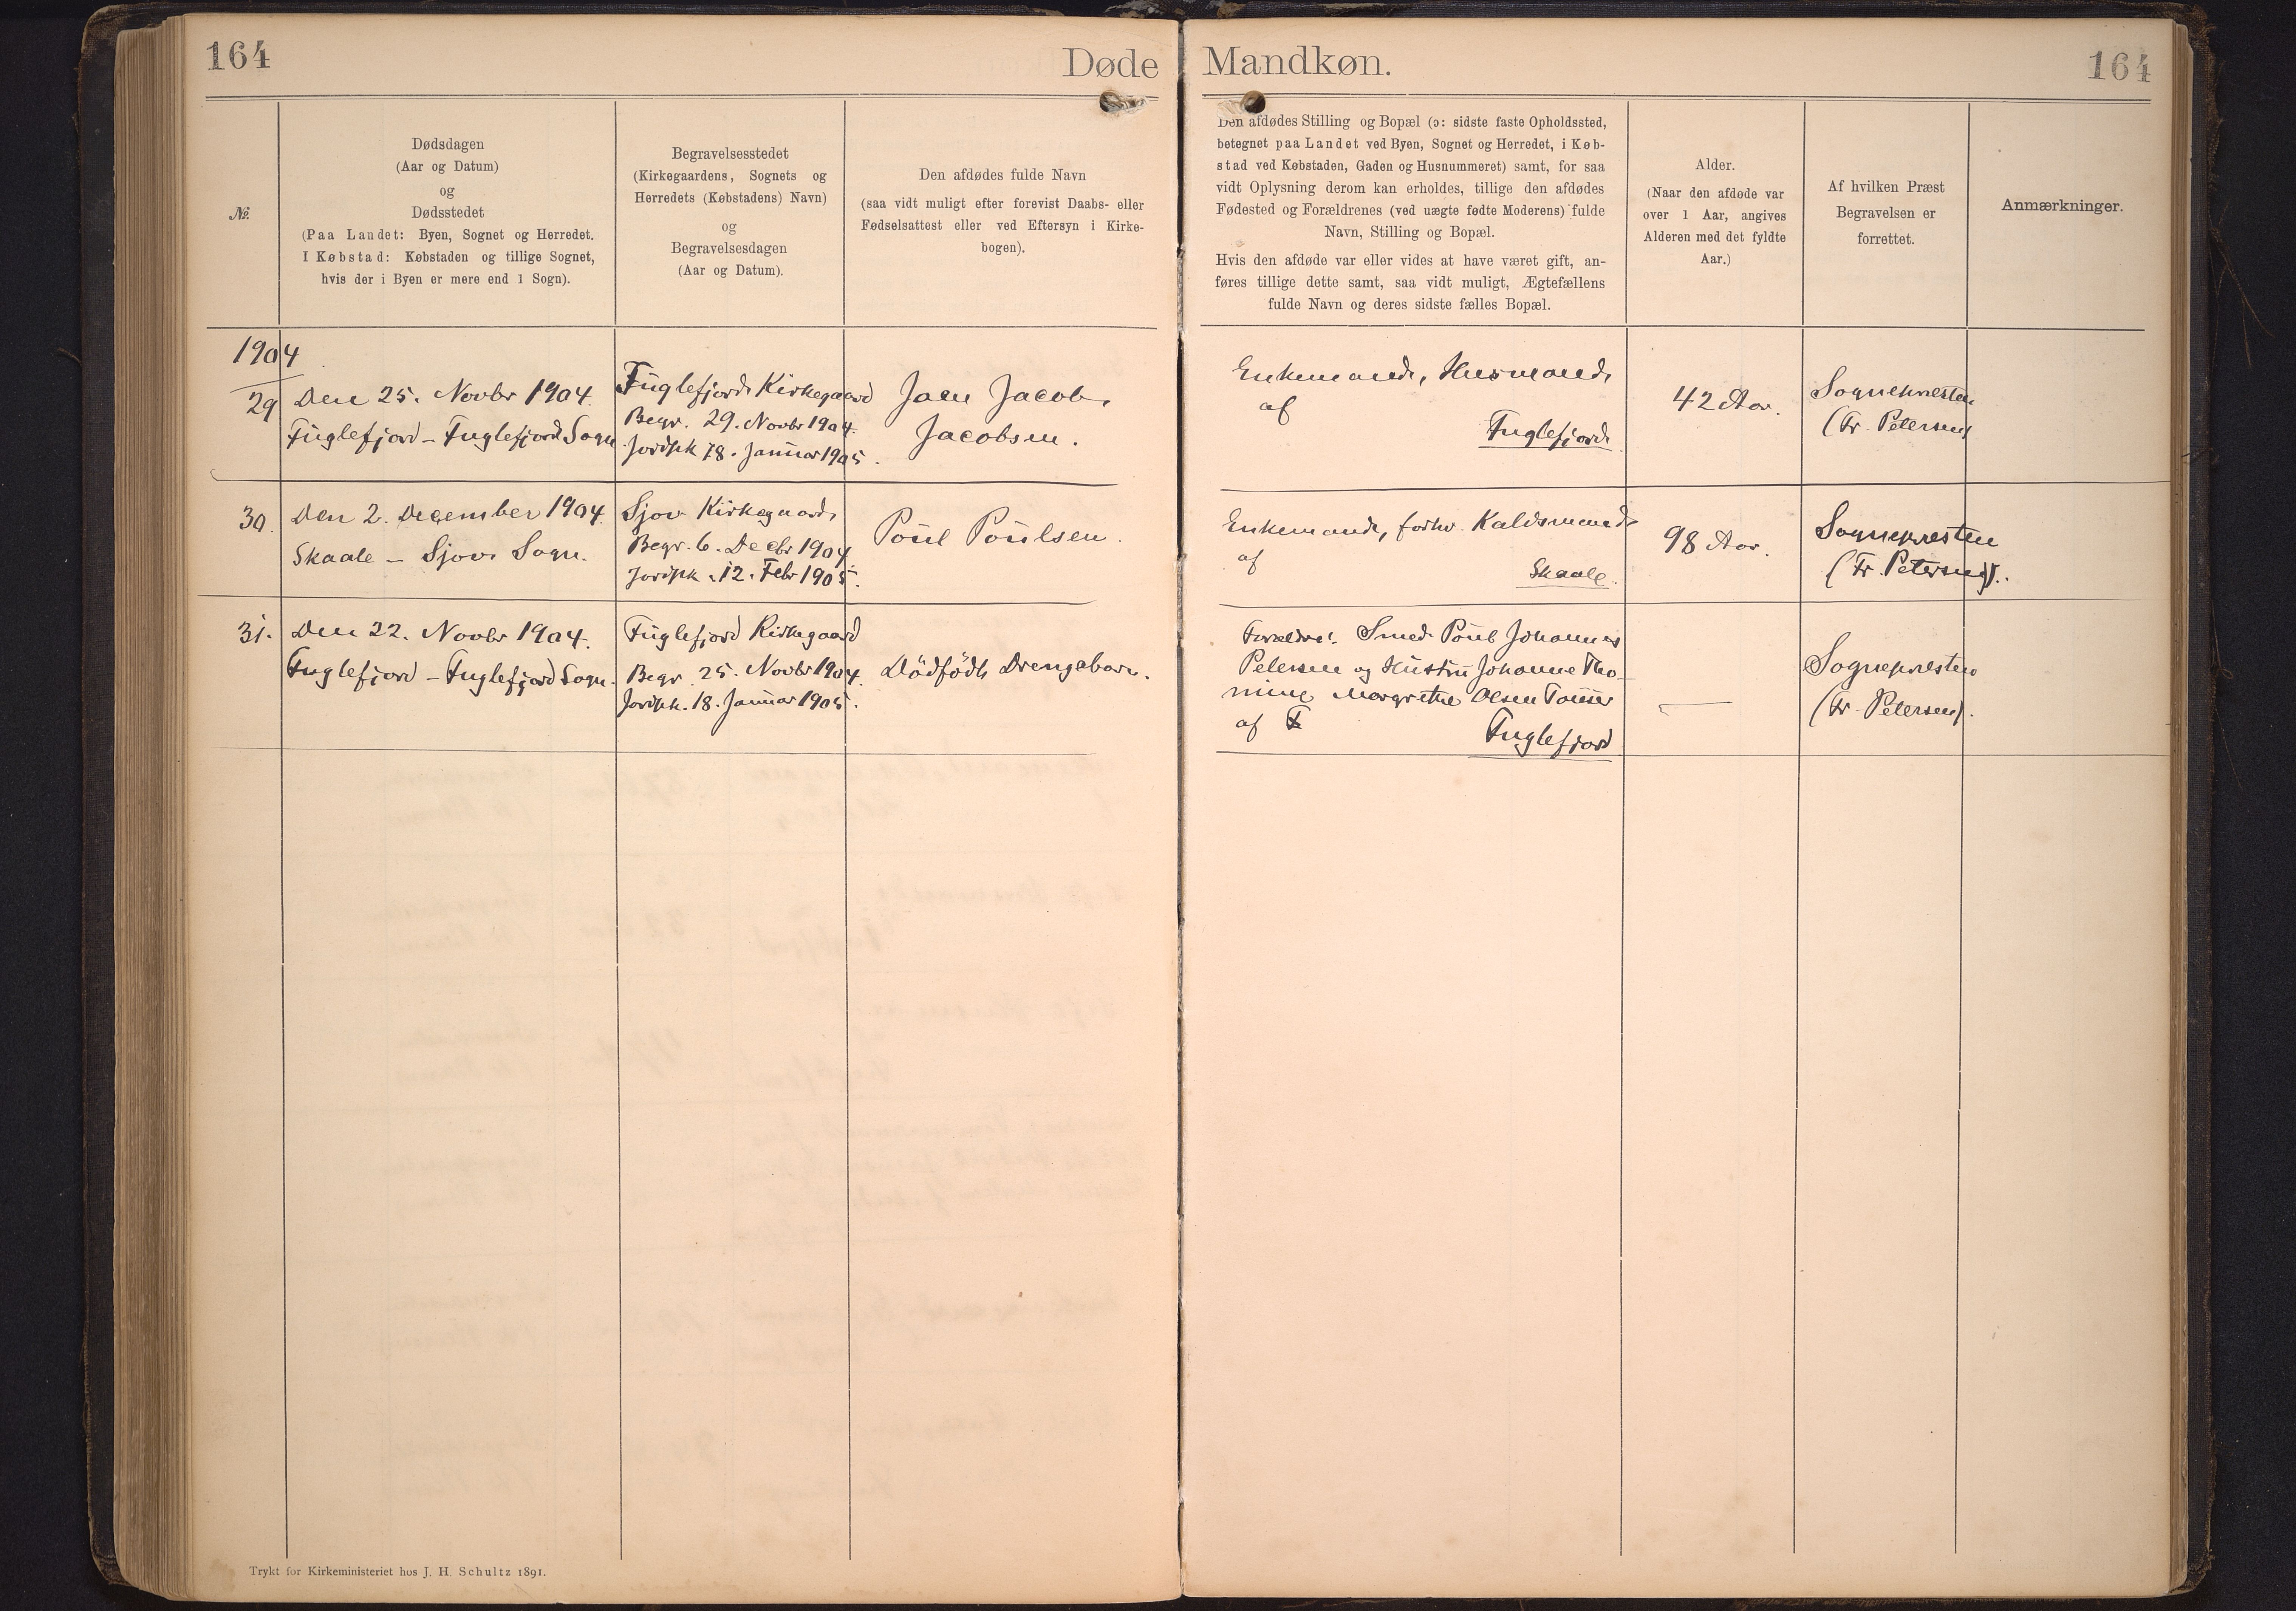 164
Døde
Mandkøn.
164
№
Dødsdagen
(Aar og Datum)
og
Dødsstedet
(Paa Landet: Byen, Sognet og Herredet.
I Købstad: Købstaden og tillige Sognet,
hvis der i Byen er mere end 1 Sogn).
Begravelsesstedet
(Kirkegaardens, Sognets og
Herredets (Købstadens) Navn)
og
Begravelsesdagen
(Aar og Datum).
Den afdødes fulde Navn
(saa vidt muligt efter forevist Daabs- eller
Fødselsattest eller ved Eftersyn i Kirke-
bogen).
Den afdødes Stilling og Bopæl (ɔ: sidste faste Opholdssted,
betegnet paa Landet ved Byen, Sognet og Herredet, i Køb-
stad ved Købstaden, Gaden og Husnummeret) samt, for saa
vidt Oplysning derom kan erholdes, tillige den afdødes
Fødested og Forældrenes (ved uægte fødte Moderens) fulde
Navn, Stilling og Bopæl.
Hvis den afdøde var eller vides at have været gift, an-
føres tillige dette samt, saa vidt muligt, Ægtefællens
fulde Navn og deres sidste fælles Bopæl.
Alder.
(Naar den afdøde var
over 1 Aar, angives
Alderen med det fyldte
Aar.)
Af hvilken Præst
Begravelsen er
forrettet.
Anmærkninger.
1904
29
Den 25. Novbr 1904.
Fuglefjord – Fuglefjord Sogn
Fuglefjord Kirkegaard
Begr. 29. Novbr 1904.
Jordpk 18. Januar 1905.
Joen Jacob
Jacobsen.
Enkemand, Husmand
af
Fuglefjord
42 Aar.
Sognepræsten
(Fr. Petersen)
30.
Den 2. December 1904.
Skaale – Sjov Sogn.
Sjov Kirkegaard
Begr. 6. Decbr 1904
Jordpk. 12. Febr 1905.
Poul Poulsen.
Enkemand, forhv. Kaldsmand
af
Skaale.
98 Aar.
Sognepræsten
(Fr. Petersen).
31.
Den 22. Novbr 1904.
Fuglefjord – Fuglefjord Sogn.
Fuglefjord Kirkegaard
Begr. 25. Novbr 1904.
Jordpk. 18. Januar 1905.
Dödfödt Drengebarn.
Forældre: Smed Poul Johannes
Petersen og Hustru Johanne Tho-
mine Margrethe Olsen
af
Fuglefjord
—
Sognepræsten
(Fr. Petersen).
Trykt for Kirkeministeriet hos J. H. Schultz 1891.